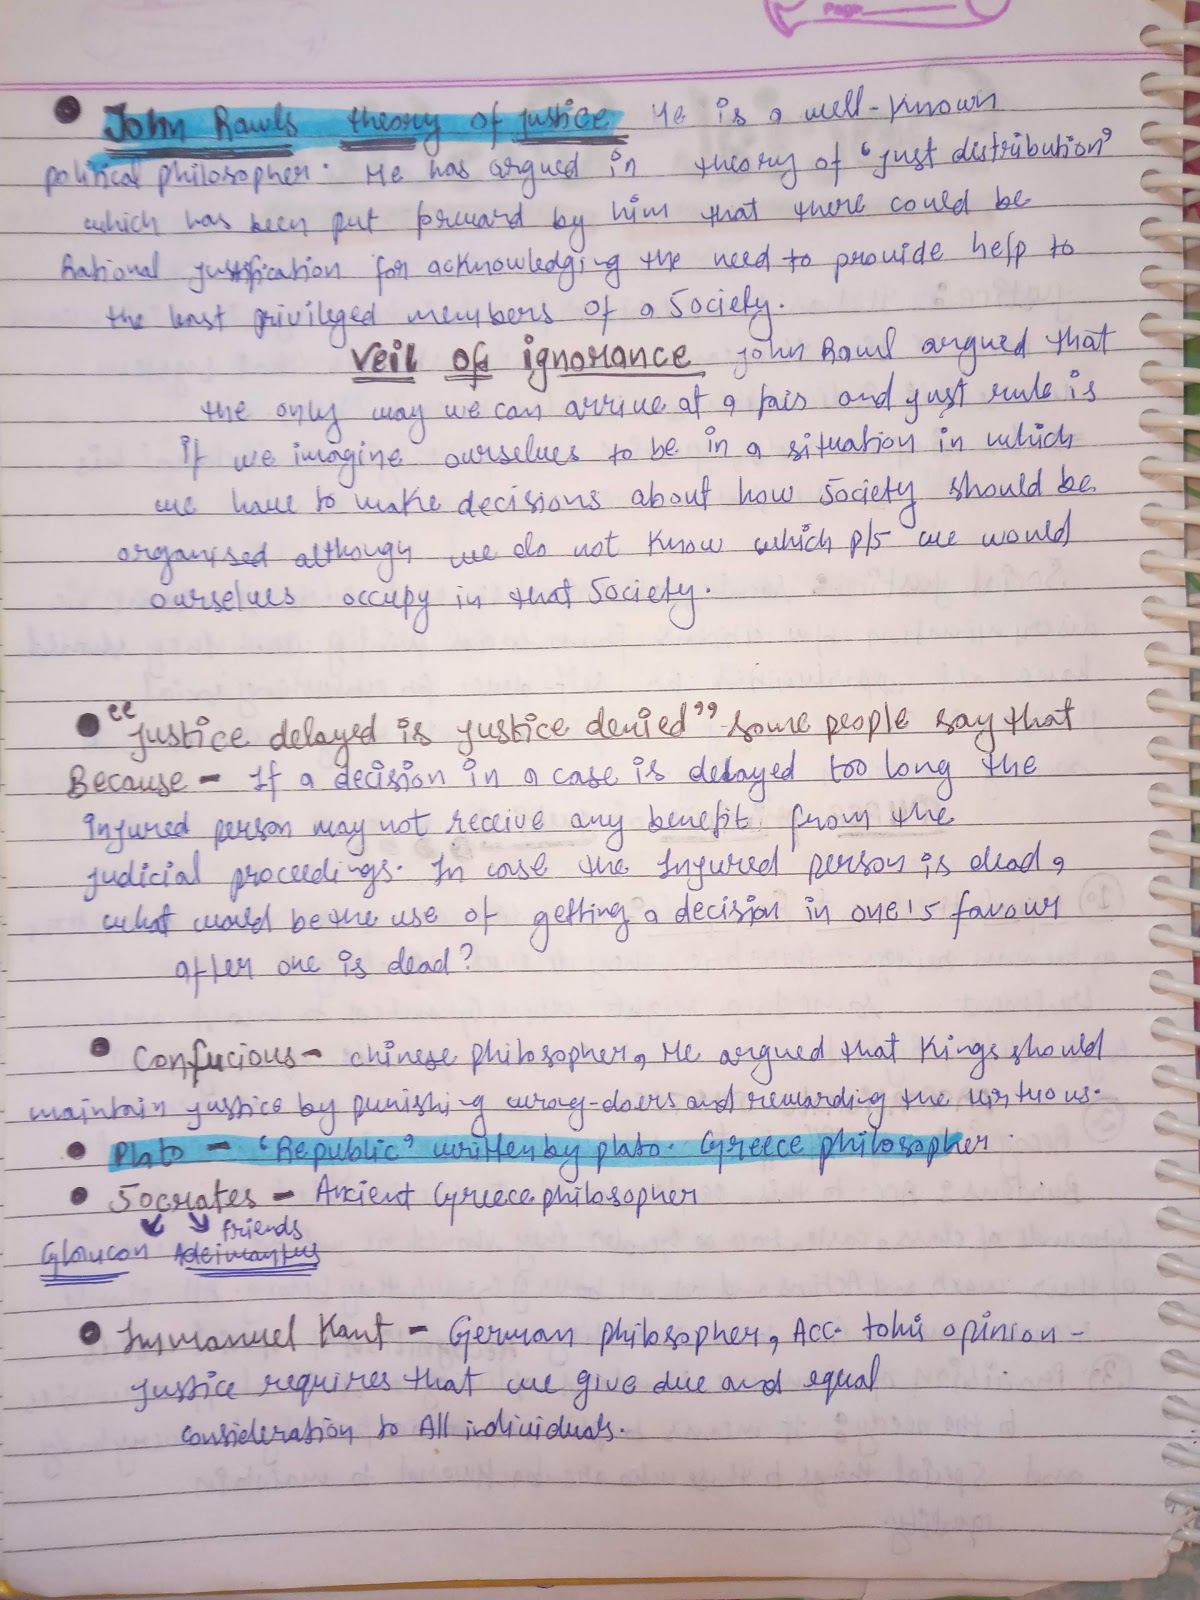 Page
• John Rawls theory of justice He is a well-known
political philosopher. He has argued in theory of 'just distribution'
which has been put forward by him that there could be
Rational justification for acknowledging the need to provide help to
the least privileged members of a Society.
Veil of ignorance John Rawl argued that
the only way we can arrive at a fair and just rule is
if we imagine ourselves to be in a situation in which
we have to make decisions about how Society should be
organised although we do not know which p/s we would
ourselves occupy in that Society.
• "Justice delayed is justice denied" some people say that
Because - If a decision in a case is delayed too long the
injured person may not receive any benefit from the
judicial proceedings. In case the Injured person is dead,
what would be the use of getting a decision in one's favour
after one is dead?
• Confucious - chinese philosopher, He argued that Kings should
maintain justice by punishing wrong-doers and rewarding the virtuous.
• Plato - 'Republic' written by plato. Greece philosopher.
• Socrates - Ancient Greece philosopher
friends
Glaucon Adeimantus
• Immanuel Kant - German philosopher, Acc. to his opinion -
justice requires that we give due and equal
consideration to All individuals.